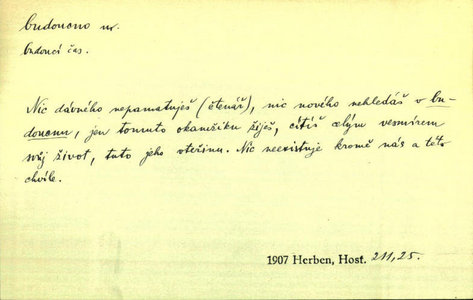 budoucno nr.
budoucí čas.
Nic dávného nepamatuješ (čtenář), nic nového nehledáš v bu-
doucnu, jen tomuto okamžiku žiješ, cítíš celým vesmírem
svůj život, tuto jeho vteřinu. Nic neexistuje kromě nás a této
chvíle.
1907 Herben, Host. 211,25.